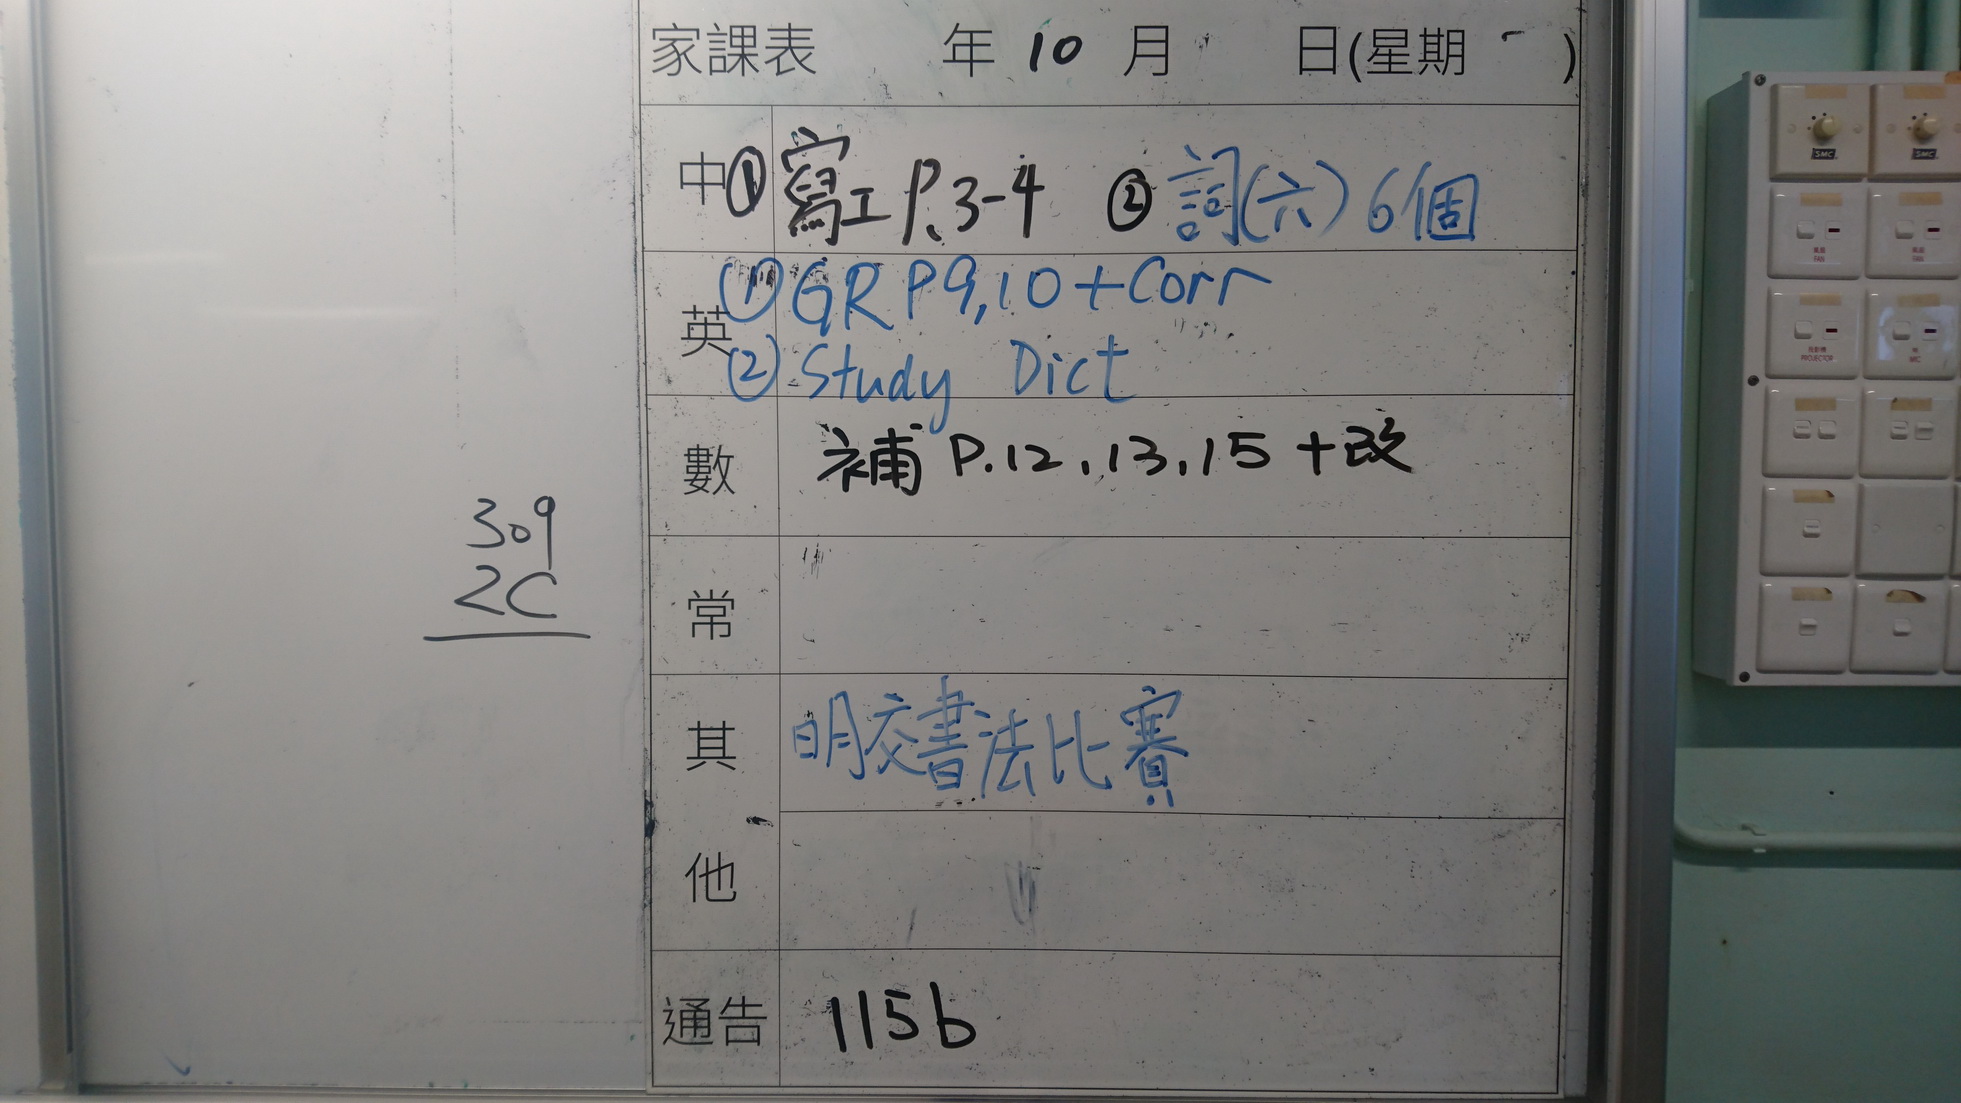 家課表 年 10 月 日(星期 )
中 ①寫工 P.3-4 ②詞(六)6個
英 ①GR P9,10+Corr
②Study Dict
數 補 P.12,13,15+改
309
2C
常
其他 明交書法比賽
通告 115b
SMC
SMC
FAN
FAN
PROJECTOR
MIC